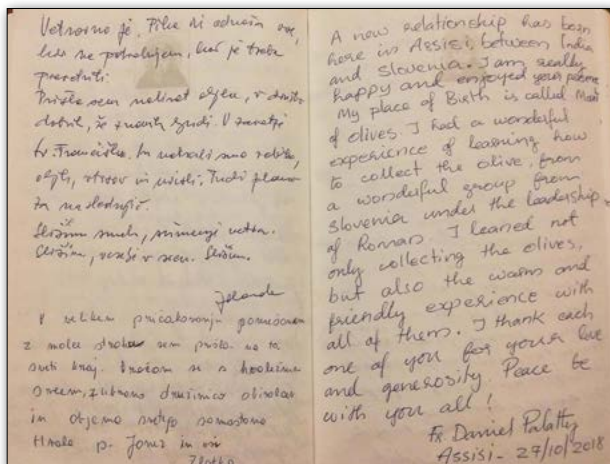 Vetrovno je. Piha in odnaša vse,
kar ne potrebujem, kar je treba
prevetriti.
Prišla sem nabirat oljke, v družbi
dobrih, že znanih ljudi. V zavetje
sv. Frančiška. In nabrali smo
oljk, vtisov in misli. Tudi plane
za naslednjič.
Slišim smeh, šumenje vetra.
Slišim, v sem. Slišim.
Jolanda
V velikem pričakovanju pomešanem
z malce strahu sem prišla na ta
sveti kraj. Vračam se s hvaležnim
srcem, z družinico
in objemom svetega samostana
Hvala p. Janez in vsi
Zlatka
A new relationship has been
here in Assisi, between India
and Slovenia. I am really
happy and enjoyed your
My place of Birth is called
of olives. I had a wonderful
experience of learning how
to collect the olive, from
a wonderful group from
Slovenia under the leadership
of Roman. I learned not
only collecting the olives,
but also the warm and
friendly experience with
all of them. I thank each
one of you for your love
and generosity. Peace be
with you all!
Fr. Daniel Palatty
Assisi - 27/10/2018